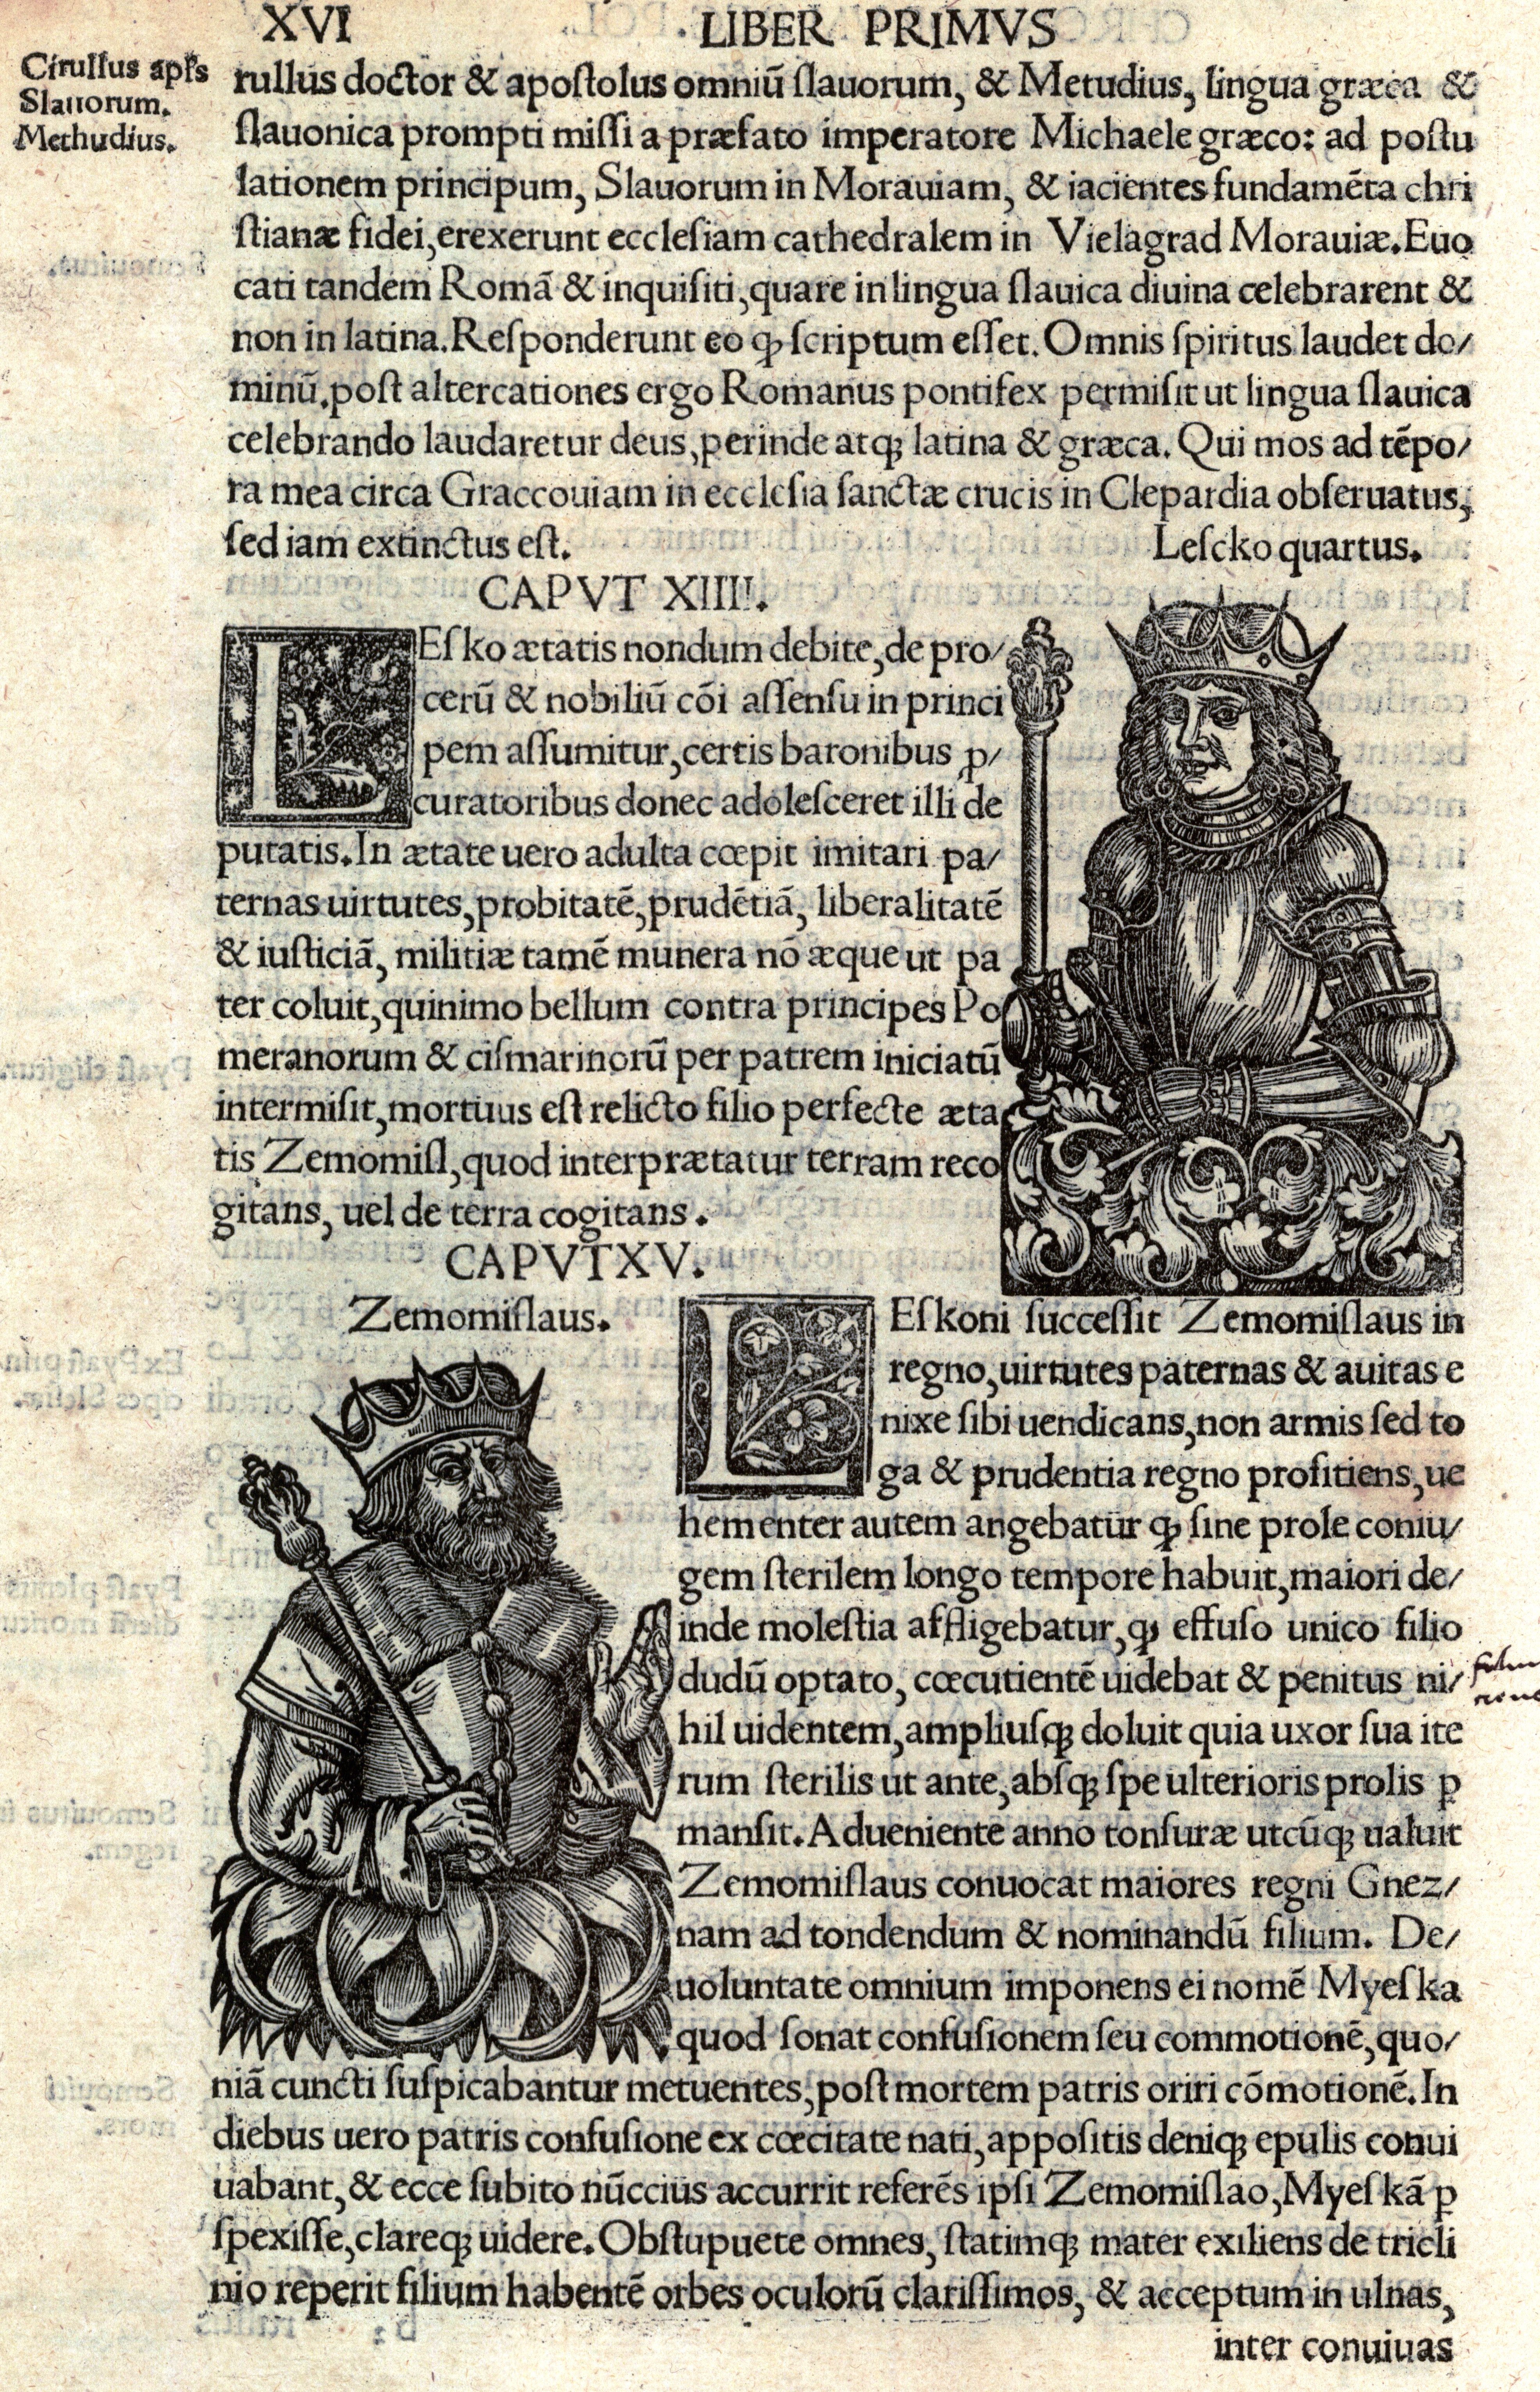 XVI LIBER PRIMVS
Cirullus apl's
Slauorum.
Methudius.
rullus doctor & apostolus omniū slauorum, & Metudius, lingua græca &
slauonica prompti missi a præfato imperatore Michaele græco: ad postu
lationem principum, Slauorum in Morauiam, & iacientes fundamēta chri
stianæ fidei, erexerunt ecclesiam cathedralem in Vielagrad Morauiæ. Euo
cati tandem Romā & inquisiti, quare in lingua slauica diuina celebrarent &
non in latina. Responderunt eo ꝙ scriptum esset. Omnis spiritus laudet do/
minū. post altercationes ergo Romanus pontifex permisit ut lingua slauica
celebrando laudaretur deus, perinde atqꝫ latina & græca. Qui mos ad tēpo/
ra mea circa Graccouiam in ecclesia sanctæ crucis in Clepardia obseruatus,
sed iam extinctus est. Lescko quartus.
CAPVT XIIII.
LEsko ætatis nondum debite, de pro/
cerū & nobiliū cōi assensu in princi
pem assumitur, certis baronibus ꝓ/
curatoribus donec adolesceret illi de
putatis. In ætate uero adulta cœpit imitari pa/
ternas uirtutes, probitatē, prudētiā, liberalitatē
& iusticiā, militiæ tamē munera nō æque ut pa
ter coluit, quinimo bellum contra principes Po
meranorum & cismarinorū per patrem iniciatū
intermisit, mortuus est relicto filio perfecte æta
tis Zemomisl, quod interprætatur terram reco
gitans, uel de terra cogitans.
CAPVT XV.
Zemomislaus.
LEskoni successit Zemomislaus in
regno, uirtutes paternas & auitas e
nixe sibi uendicans, non armis sed to
ga & prudentia regno profitiens, ue
hementer autem angebatur ꝙ sine prole coniu/
gem sterilem longo tempore habuit, maiori de/
inde molestia affligebatur, ꝙ effuso unico filio
dudū optato, cœcutientē uidebat & penitus ni/
hil uidentem, ampliusqꝫ doluit quia uxor sua ite
rum sterilis ut ante, absqꝫ spe ulterioris prolis ꝑ
mansit. Adueniente anno tonsuræ utcūqꝫ ualuit
Zemomislaus conuocat maiores regni Gnez/
nam ad tondendum & nominandū filium. De/
uoluntate omnium imponens ei nomē Myeska
quod sonat confusionem seu commotionē, quo/
niā cuncti suspicabantur metuentes, post mortem patris oriri cōmotionē. In
diebus uero patris confusione ex cœcitate nati, appositis deniqꝫ epulis conui
uabant, & ecce subito nūccius accurrit referēs ipsi Zemomislao, Myeskā ꝑ
spexisse, clareqꝫ uidere. Obstupuete omnes, statimqꝫ mater exiliens de tricli
nio reperit filium habentē orbes oculorū clarissimos, & acceptum in ulnas,
inter conuiuas